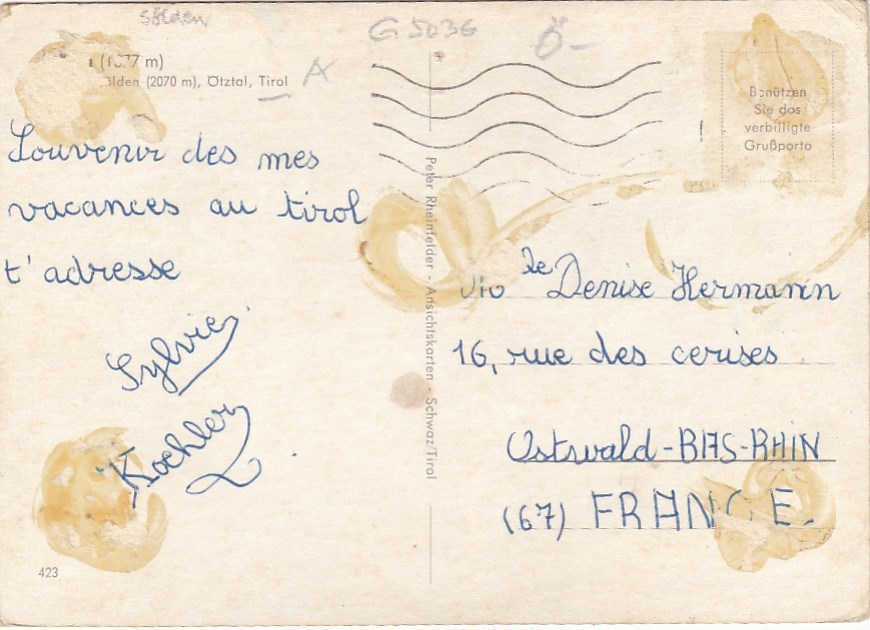 Sölden
G 5036
Ö-
A
(1377 m)
(2070 m), Ötztal, Tirol
Benützen
Sie das
verbilligte
Grußporto
Souvenir des mes
vacances au tirol
t'adresse
Sylvie
Kochler
Peter Rheinfelder - Ansichtskarten - Schwaz/Tirol
Denise Hermann
16, rue des cerises
Ostwald-BAS-RHIN
(67) FRANCE.
423